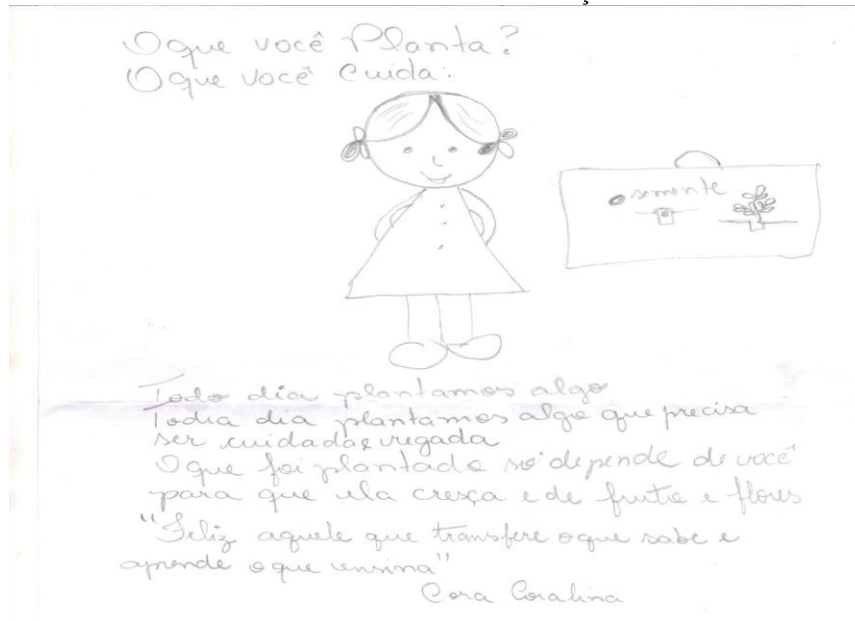 O que você Planta?
O que você Cuida:
semente
Todo dia plantamos algo
Todia dia plantamos algo que precisa
ser cuidada e regada
O que foi plantado só depende de você
para que ela cresça e de fruto e flores
"Feliz aquele que transfere o que sabe e
aprende o que ensina"
Cora Coralina